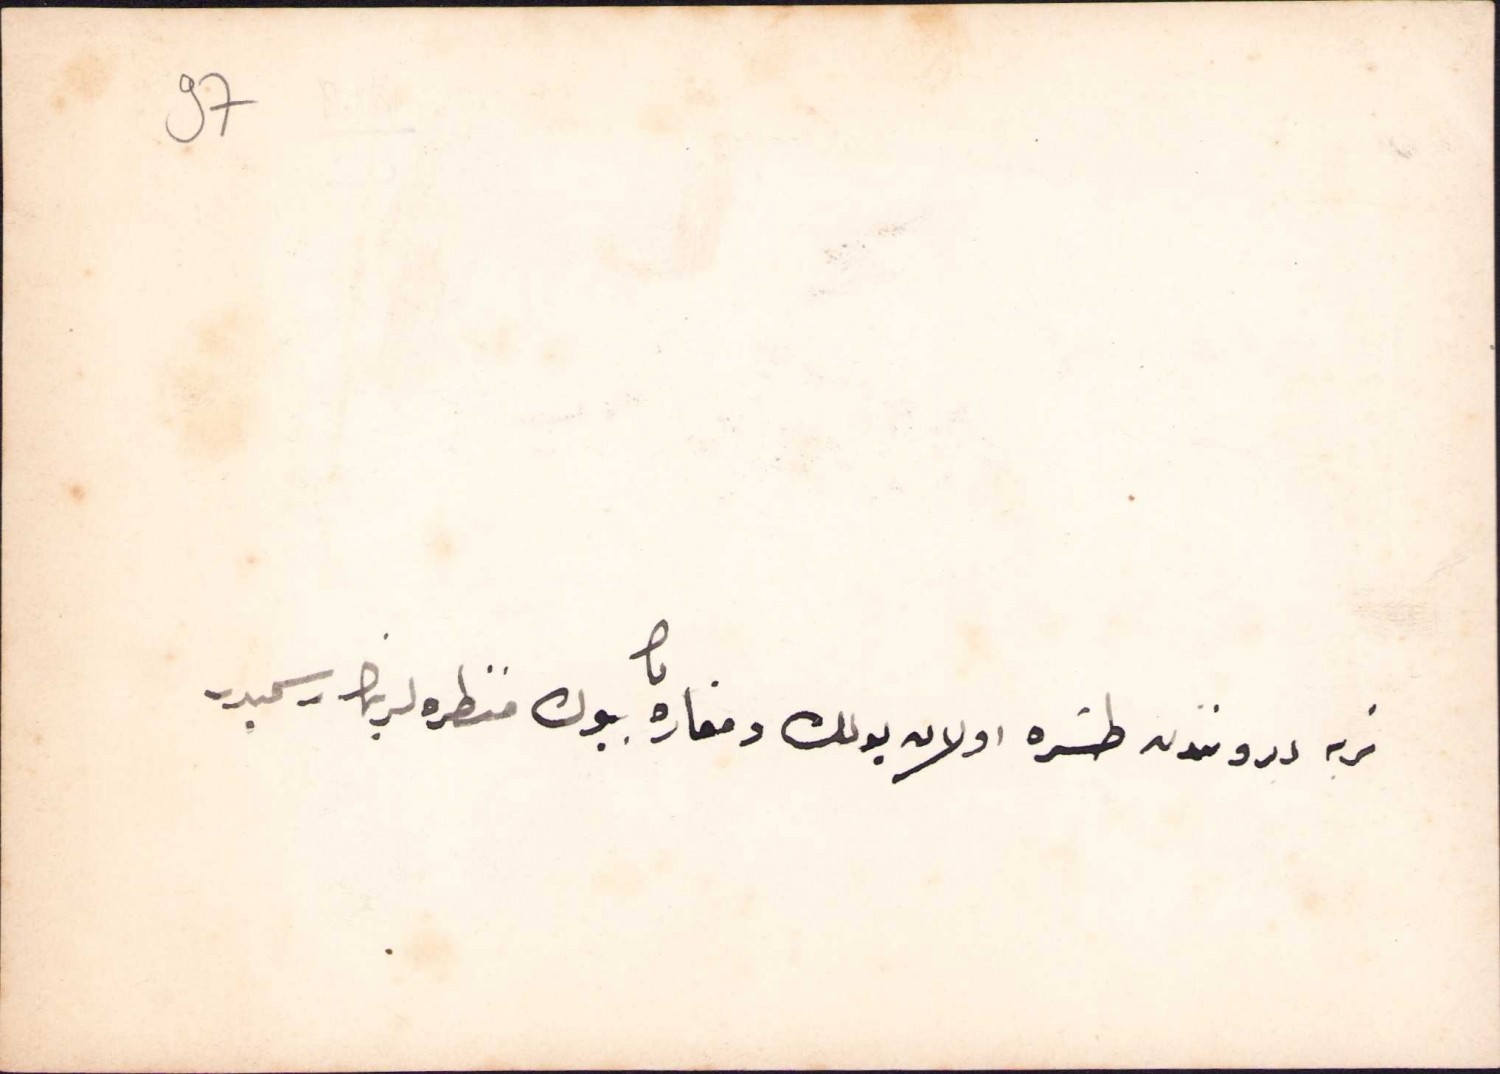 97
تربه درونندن طشره اولان يوللك و مغاره نك بيوك منظره لرينك رسميدر